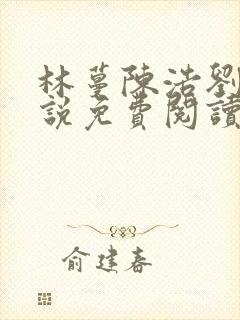 林蔓陳浩劉
說免費閱讀
俞建春